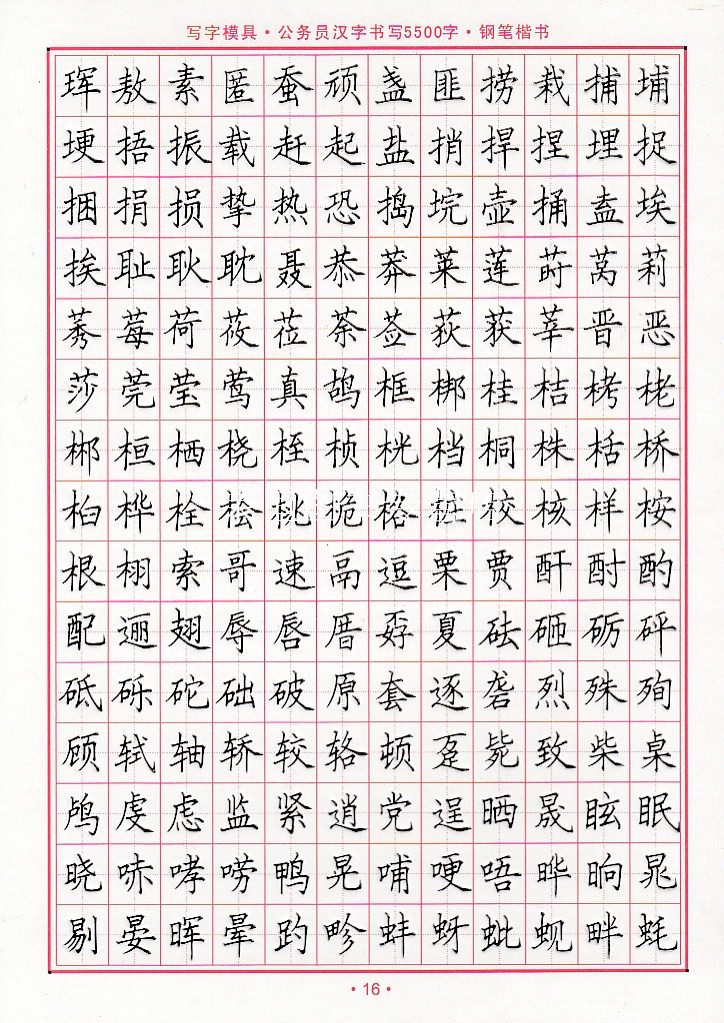 写字模具·公务员汉字书写5500字·钢笔楷书
珲敖素匿蚕顽盏匪捞栽捕埔
埂捂振载赶起盐捎捍捏埋捉
捆捐损挚热恐捣垸壶捅盍埃
挨耻耿耽聂恭莽莱莲莳莴莉
莠莓荷莜莅荼莶荻获莘晋恶
莎莞莹莺真鸪框梆桂桔栲栳
郴桓栖桡桎桢桄档桐株栝桥
桕桦栓桧桃桅格桩校核样桉
根栩索哥速鬲逗栗贾酐酎酌
配逦翅辱唇厝孬夏砝砸砺砰
砥砾砣础破原套逐砻烈殊殉
顾轼轴轿较辂顿趸毙致柴桌
鸬虔虑监紧逍党逞晒晟眩眠
晓哧哮唠鸭晃哺哽唔晔晌晁
剔晏晖晕趵畛蚌蚜蚍蚬畔蚝
·16·